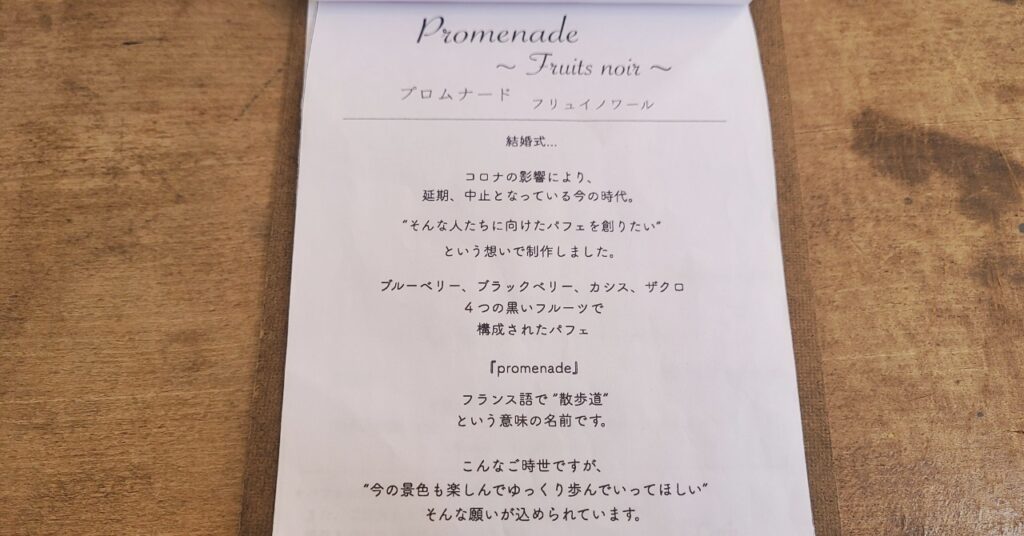 Promenade
～ Fruits noir ～
プロムナード フリュイノワール
結婚式…
コロナの影響により、
延期、中止となっている今の時代。
“そんな人たちに向けたパフェを創りたい”
という想いで制作しました。
ブルーベリー、ブラックベリー、カシス、ザクロ
４つの黒いフルーツで
構成されたパフェ
『promenade』
フランス語で “散歩道”
という意味の名前です。
こんなご時世ですが、
“今の景色も楽しんでゆっくり歩んでいってほしい”
そんな願いが込められています。